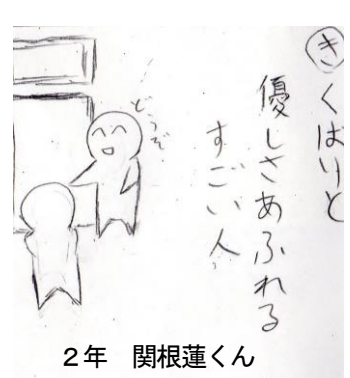 きくばりと
優しさあふれる
すごい人
どうぞ
2年　関根蓮くん